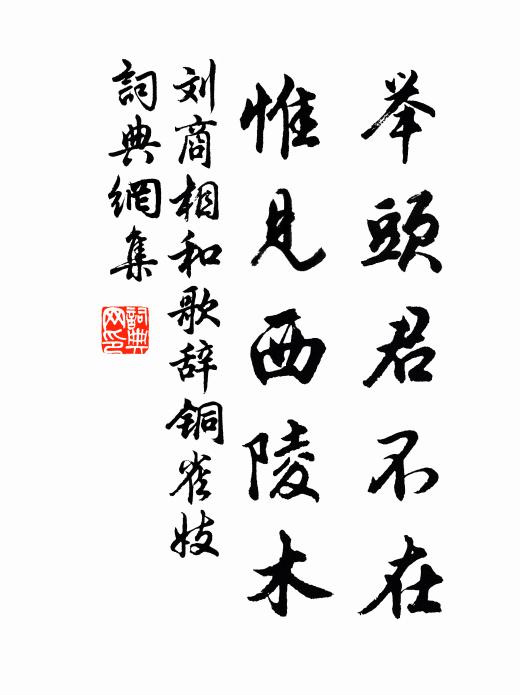 举頭君不在
惟见西陵木
刘商相和歌辞铜雀妓
詞典網集
詞典网印